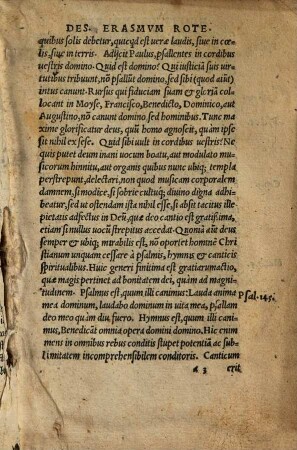 DES. ERASMVM ROTE-
quibus solis debetur, quicqd est ueræ laudis, siue in cœ-
lis, siue in terris. Adijcit Paulus, psallentes in cordibus
uestris domino. Quid est domino? Qui iusticiã suis uir-
tutibus tribuunt, nõ psallũt domino, sed sibi (quod aiũt)
intus canunt. Rursus qui fiduciam suam & gloriã col-
locant in Moyse, Francisco, Benedicto, Dominico, aut
Augustino, nõ canunt domino sed hominibus. Tunc ma-
xime glorificatur deus, quũ homo agnoscit, quàm ipse
sit nihil ex sese. Quid sibi uult in cordibus uestris? Ne
quis putet deum inani uocum boatu, aut modulato mu-
sicorum hinnitu, aut organis quibus nunc ubiq; templa
perstrepunt, delectari, non quod musicam corporalem
damnem, si modice, si sobrie cultuq; diuino digna adhi-
beatur, sed ut ostendam ista nihil esse, si absit tacitus ille
pietatis adfectus in Deũ, quæ deo cantio est gratissima,
etiam si nullus uocũ strepitus accedat. Quoniã aũt deus
semper & ubiq; mirabilis est, nõ oportet hominẽ Chri
stianum unquam cessare à psalmis, hymnis & canticis
spiritualibus. Huic generi finitima est gratiarumactio,
quæ magis pertinet ad bonitatem dei, quàm ad magni-
tudinem. Psalmus est, quum illi canimus: Lauda anima
Psal. 145.
mea dominum, laudabo dominum in uita mea, psallam
deo meo quàm diu fuero. Hymnus est, quum illi cani-
mus, Benedicãt omnia opera domini domino. Hic enim
mens in omnibus rebus conditis stupet potentiã ac sub-
limitatem incomprehensibilem conditoris. Canticum
a 3 est